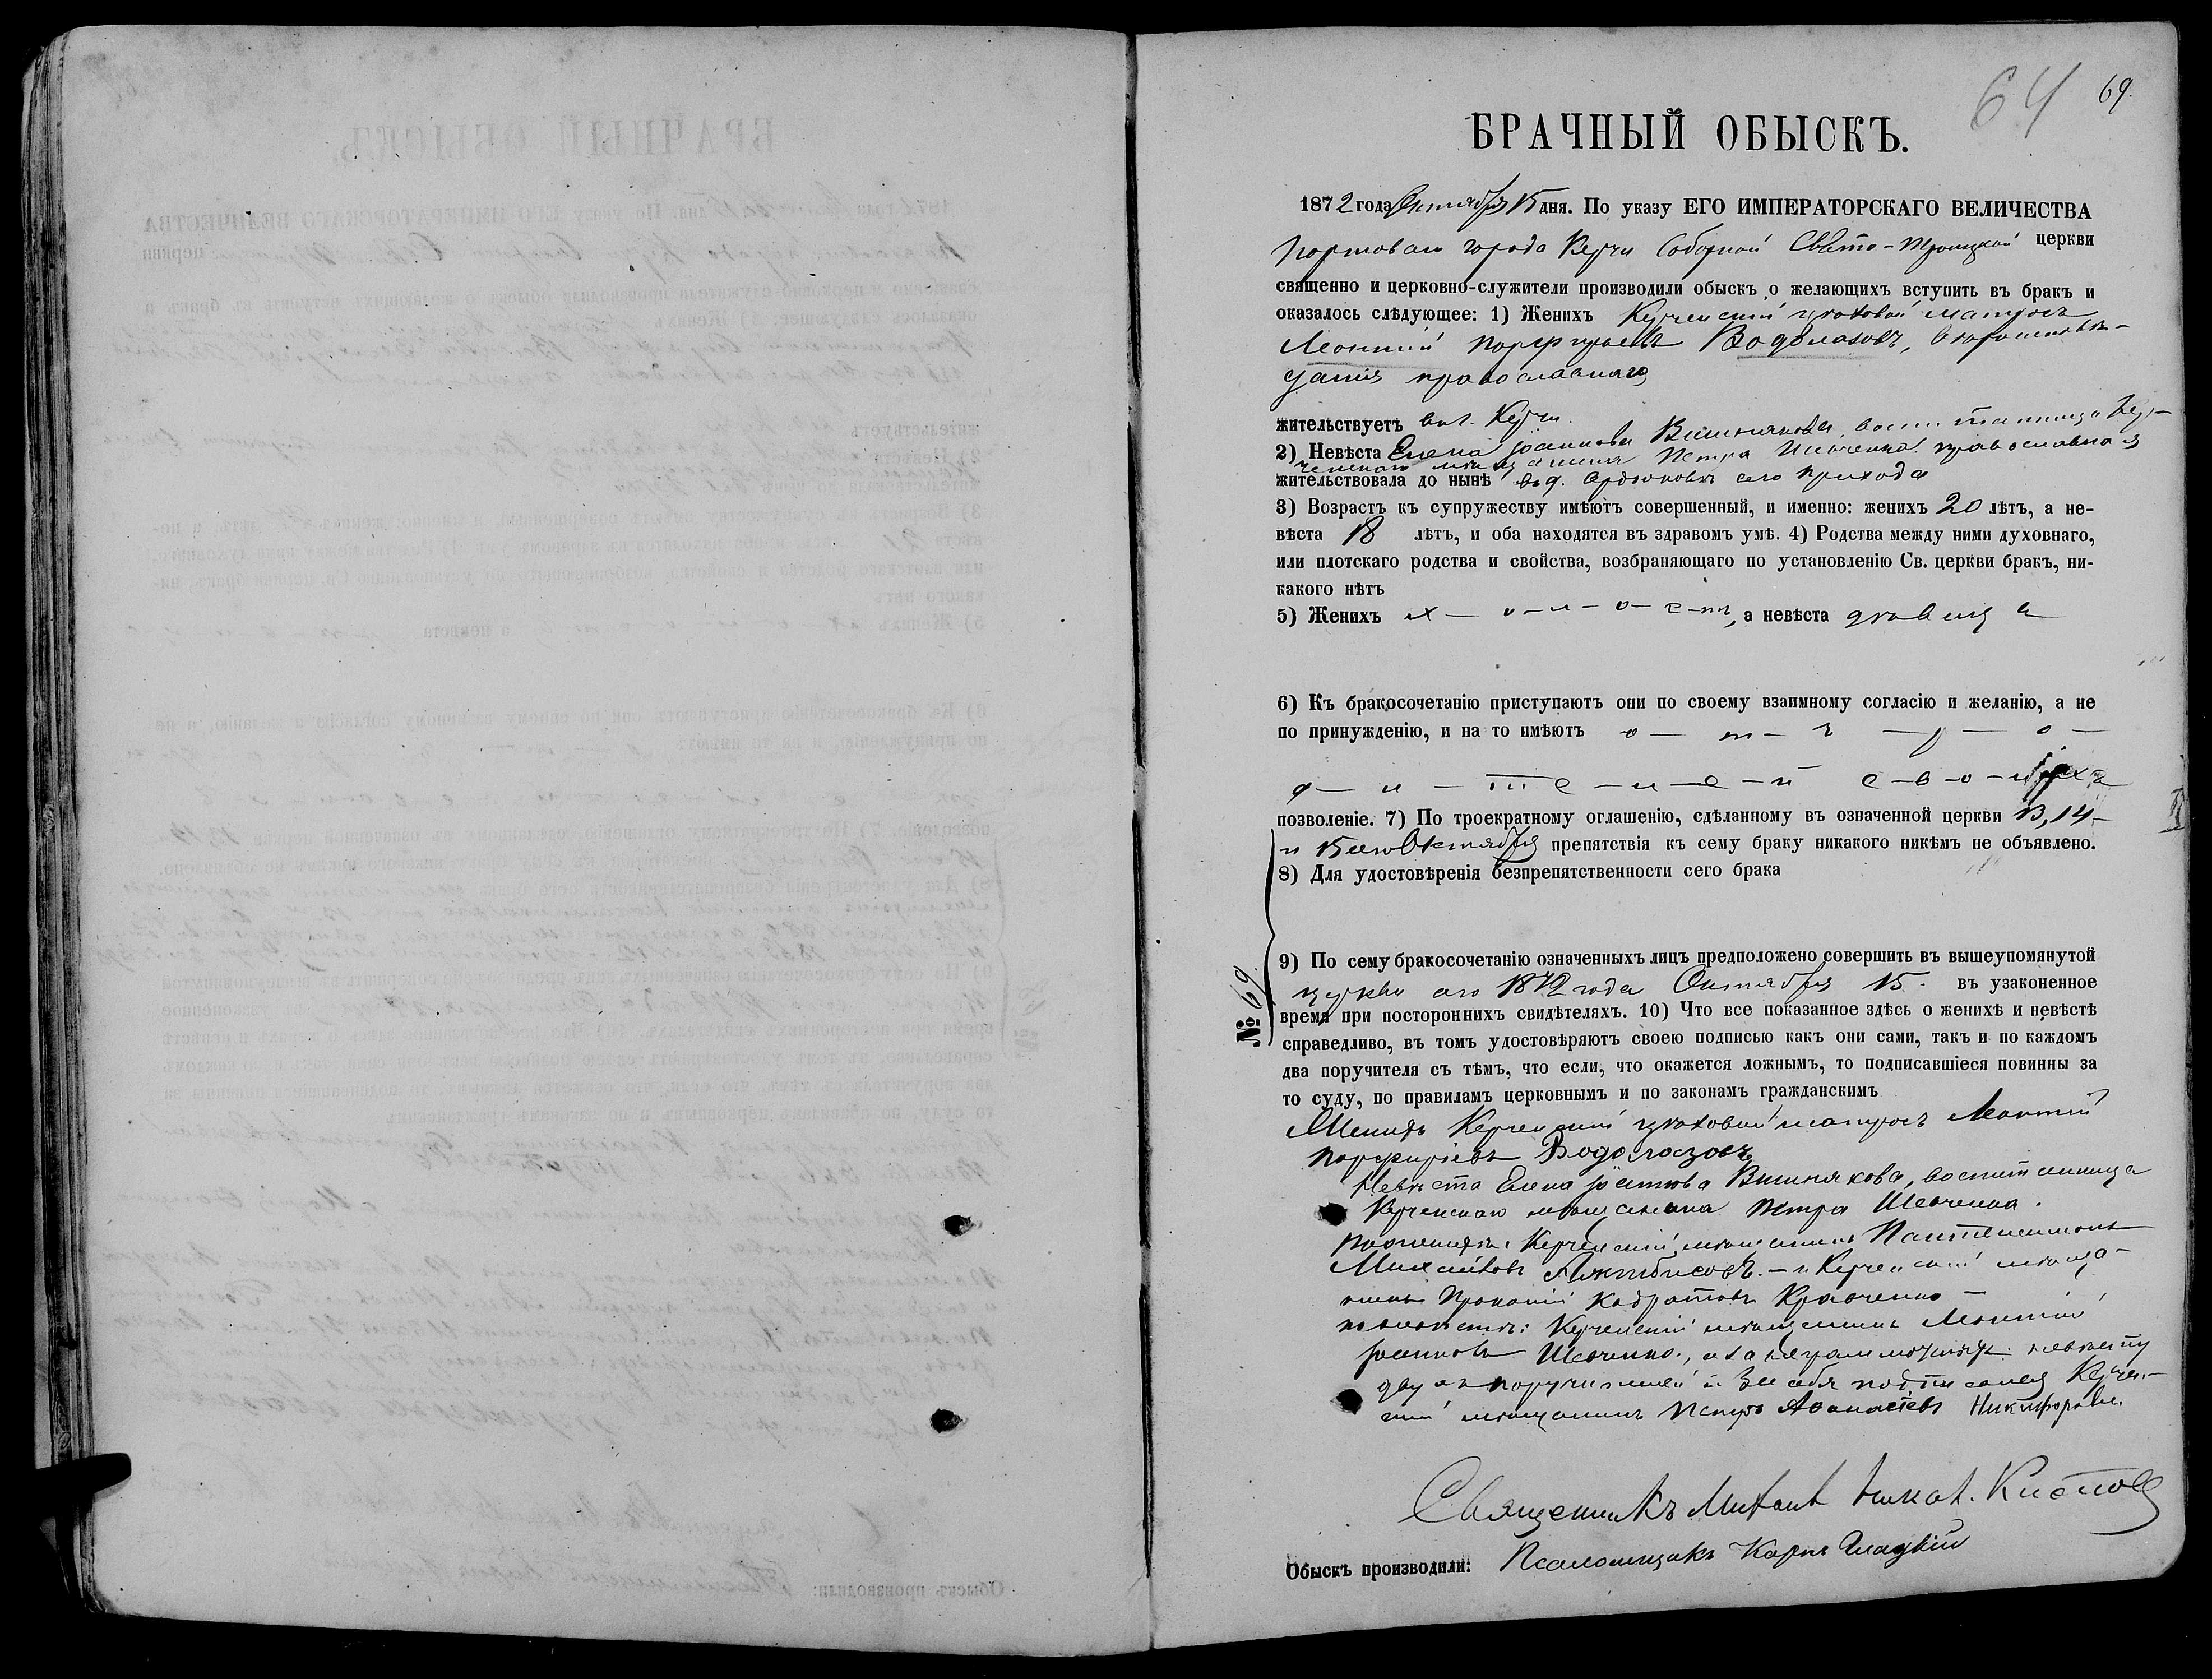 64 69.
БРАЧНЫЙ ОБЫСКЪ.
1872 года Октября 15 дня. По указу ЕГО ИМПЕРАТОРСКАГО ВЕЛИЧЕСТВА
Портоваго города Керчи Соборной Свято-Троицкой церкви
священно и церковно-служители производили обыскъ о желающихъ вступить въ бракъ и
оказалось слѣдующее: 1) Женихъ Керченскій цѣховой матросъ
Леонтій Порфирьевъ Водолазовъ,
православнаго
жительствуетъ въ г. Керчи.
2) Невѣста Елена Іоаннова Вишнякова, воспитанница Кер-
ченскаго мѣщанина Петра Шевченка православная
жительствовала до нынѣ въ приходѣ
3) Возрастъ къ супружеству имѣютъ совершенный, и именно: женихъ 20 лѣтъ, а не-
вѣста 18 лѣтъ, и оба находятся въ здравомъ умѣ. 4) Родства между ними духовнаго,
или плотскаго родства и свойства, возбраняющаго по установленію Св. церкви бракъ, ни-
какого нѣтъ
5) Женихъ х—о—л—о—с—тъ, а невѣста дѣвица
6) Къ бракосочетанію приступаютъ они по своему взаимному согласію и желанію, а не
по принужденію, и на то имѣютъ о — т — ъ — р — о —
д — и — т е — л — е — й с — в — о — ихъ
позволеніе. 7) По троекратному оглашенію, сдѣланному въ означенной церкви 13, 14
и 15го Октября препятствія къ сему браку никакого никѣмъ не объявлено.
8) Для удостовѣренія безпрепятственности сего брака
9) По сему бракосочетанію означенныхъ лицъ предположено совершить въ вышеупомянутой
церкви сего 1872 года Октября 15. въ узаконенное
время при постороннихъ свидѣтеляхъ. 10) Что все показанное здѣсь о женихѣ и невѣстѣ
справедливо, въ томъ удостовѣряютъ своею подписью какъ они сами, такъ и по каждомъ
два поручителя съ тѣмъ, что если, что окажется ложнымъ, то подписавшіеся повинны за
то суду, по правиламъ церковнымъ и по законамъ гражданскимъ
№ 69.
Женихъ Керченскій цѣховой матросъ Леонтій
Порфиріевъ Водолазовъ
Невѣста Елена Іоаннова Вишнякова, воспитанница
Керченскаго мѣщанина Петра Шевченка.
По женихѣ: Керченскій мѣщанинъ Пантелеимонъ
Михайловъ – и Керченскій мѣща-
нинъ Прокопій Кодратовъ Кравченко –
по невѣстѣ: Керченскій мѣщанинъ Леонтій
Іоанновъ Шевченко, а за неграмотную невѣсту
двухъ поручителей и за себя подписался Керчен-
скій мѣщанинъ Петръ Аѳанасіевъ Никифоровъ.
Священникъ Михаилъ Кистовъ
Обыскъ производили: Псаломщикъ Карпъ Гладкій